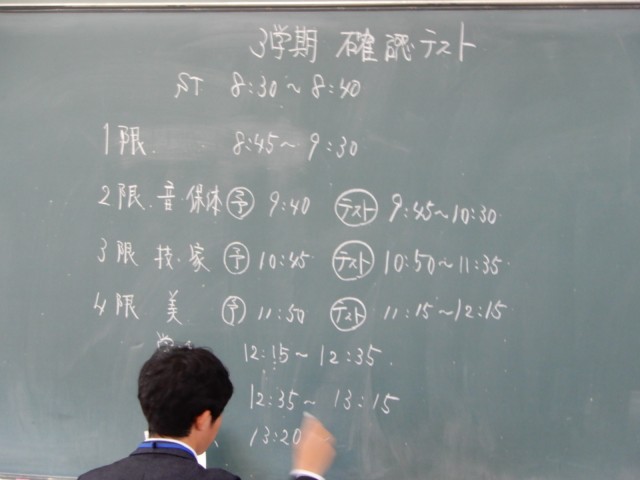 3学期 確認テスト
ST 8:30～8:40
1限. 8:45～9:30
2限. 音・保体 予 9:40 テスト 9:45～10:30
3限 技・家 予 10:45 テスト 10:50～11:35
4限 美 予 11:50 テスト 11:15～12:15
12:15～12:35
12:35～13:15
13:20